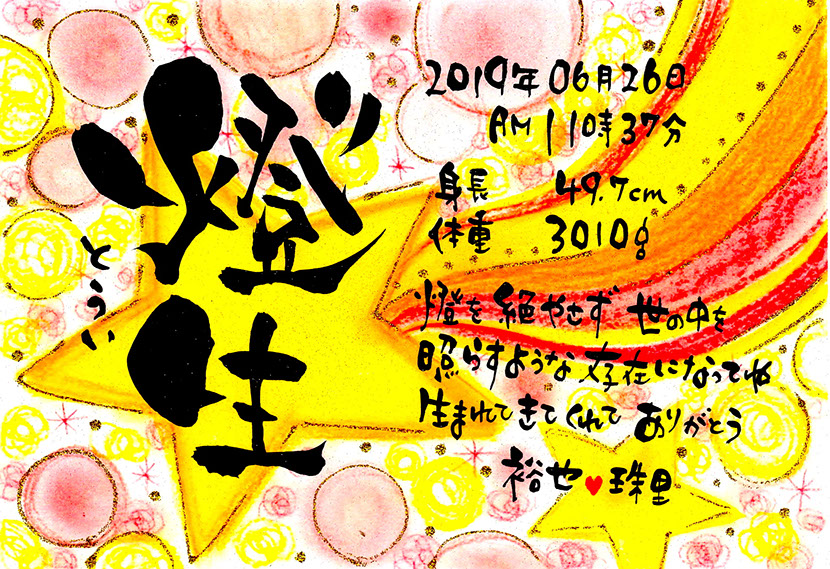 燈生
とうい
2019年06月26日
AM 110時37分
身長 49.7cm
体重 3010g
燈を絶やさず 世の中を
照らすような存在になってね
生まれてきてくれて ありがとう
裕也♥珠里